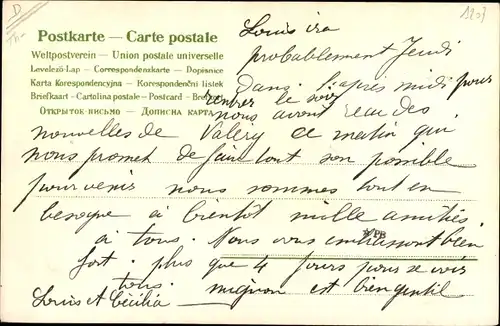 D
1207
Postkarte — Carte postale
Weltpostverein — Union postale universelle
Levelező-Lap — Correspondenzkarte — Dopisnice
Karta Korespondencyjna — Korespondenční listek
Briefkaart — Cartolina postale — Postcard —
Открытое письмо — Дописна карта
Louis ira
probablement Jeudi
Dans l'après midi pour
rentrer le soir
nous avons reçu des
nouvelles de Valery ce matin qui
nous promet de faire tout son possible
pour venir nous sommes tout en
besogne à bientôt mille amitiés
à tous. Nous vous embrassons bien
fort. plus que 4 jours pour se voir
tous. mignon est bien gentil
Louis et Cécilia
PB